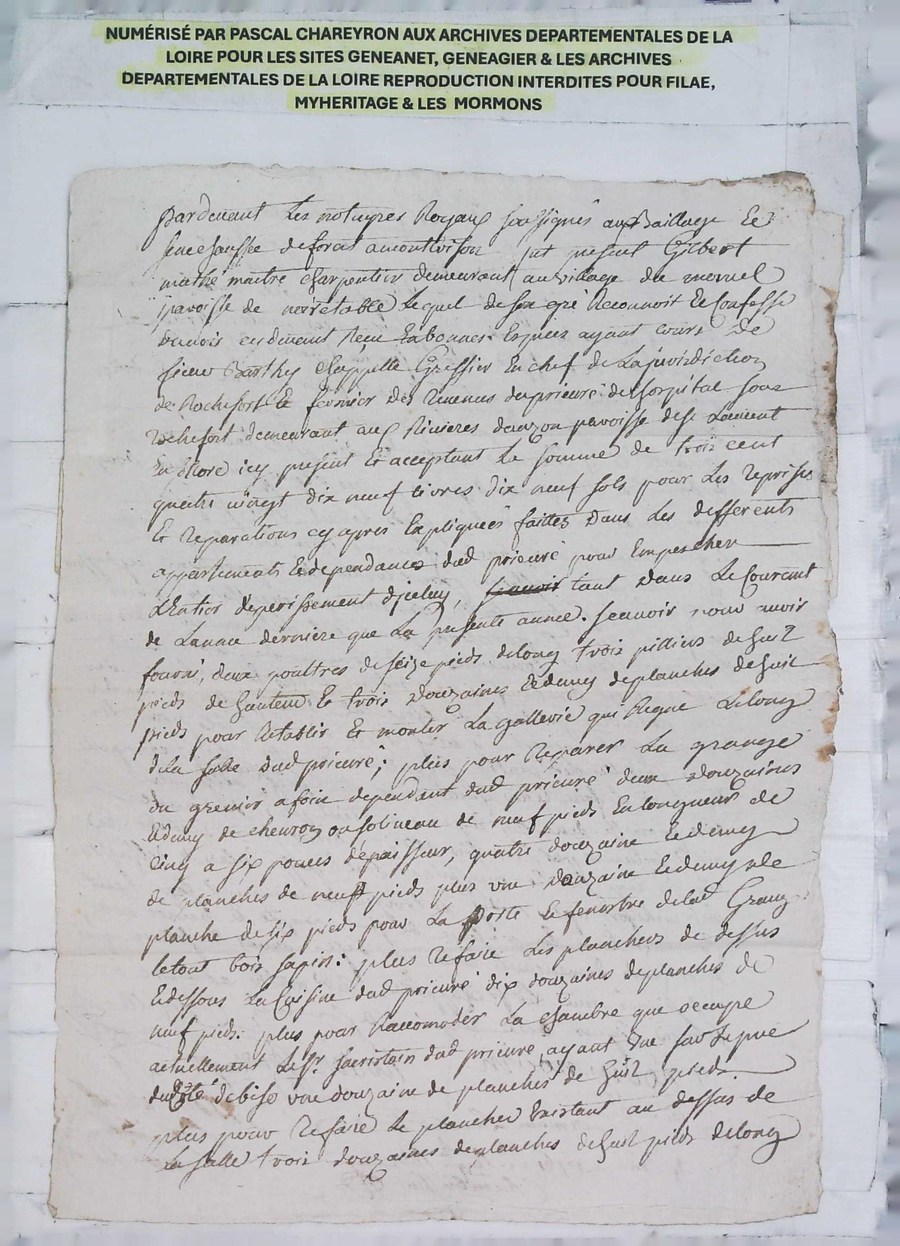 NUMÉRISÉ PAR PASCAL CHAREYRON AUX ARCHIVES DEPARTEMENTALES DE LA
LOIRE POUR LES SITES GENEANET, GENEAGIER & LES ARCHIVES
DEPARTEMENTALES DE LA LOIRE REPRODUCTION INTERDITES POUR FILAE,
MYHERITAGE & LES MORMONS
pardevant Les notayres Royaux soussignés au Bailliage Et
senechaussée de forest a montbrison fut present Gilbert
mathé maitre charpentier demeurant au village du
paroisse de noiretable Lequel de son gré Reconnoit Et Confesse
avoir cy devant Reçu En bonnes Especes ayant cours de
sieur Barthy Chappelle Greffier En chef de La jurisdiction
de Rochefort Et fermier des Revenus du prieuré de L'hopital sous
Rochefort demeurant aux Rivieres d'auzon paroisse de St Laurent
icy present Et acceptant La somme de trois cent
quatre vingt dix neuf livres dix neuf sols pour Les Reprises
Et Reparations cy apres Expliquées faittes Dans Les differents
appartements Et dependances dud prieuré pour Empescher
L'Entier deperissement d'jceluy, tant Dans Le Courant
de L'année derniere que La presente année. sçauoir pour avoir
fourni, deux poultres de seize pieds de long trois pilliers de huit
pieds de hauteur Et trois Douzaines Et demy de planches de huit
pieds pour Retablir Et monter La gallerie qui Regne Le Long
de la salle dud prieuré; plus pour Reparer La grange
ou grenier a foin dependant dud prieuré deux Douzaines
Et demy de chevrons ou soliveau de neuf pieds En longueur de
cinq a six pouces d'epaisseur, quatre douzaine Et demy
de planches de neuf pieds plus une Douzaine Et demy de
planche de six pieds pour La Porte Et fenestre de lad Grange
le tout bois sapin: plus Refaire Les planchers de dessus
Et dessous La Cuisine dud prieuré dix douzaines de planches de
neuf pieds: plus pour Raccomoder La chambre que occupe
actuellement Le Sr. sacristain dud prieuré, ayant Vue
du Coté de bise une douzaine de planches de huit pieds
plus pour Refaire Le plancher Existant au dessus de
La salle trois douzaines de planches de huit pieds de long